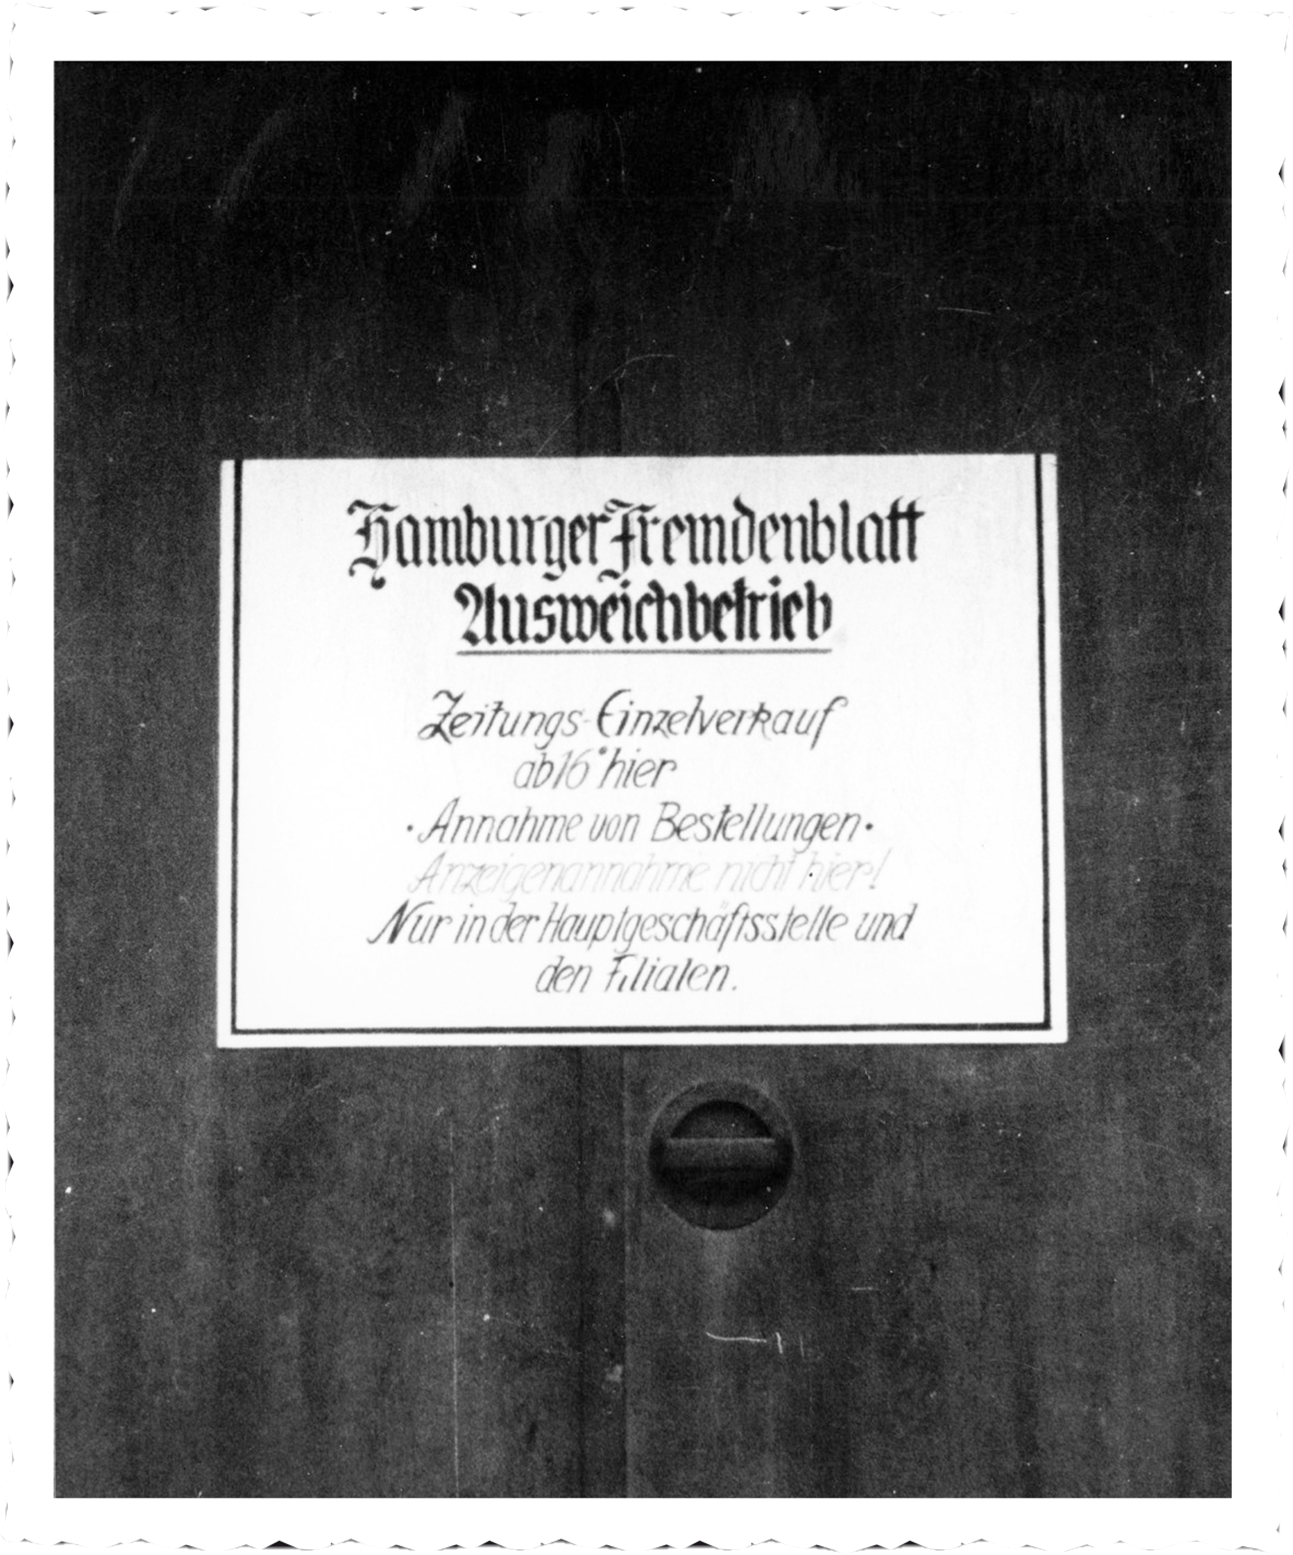 Hamburger Fremdenblatt
Ausweichbetrieb
Zeitungs-Einzelverkauf
ab 16° hier
· Annahme von Bestellungen ·
Anzeigenannahme nicht hier!
Nur in der Hauptgeschäftsstelle und
den Filialen.